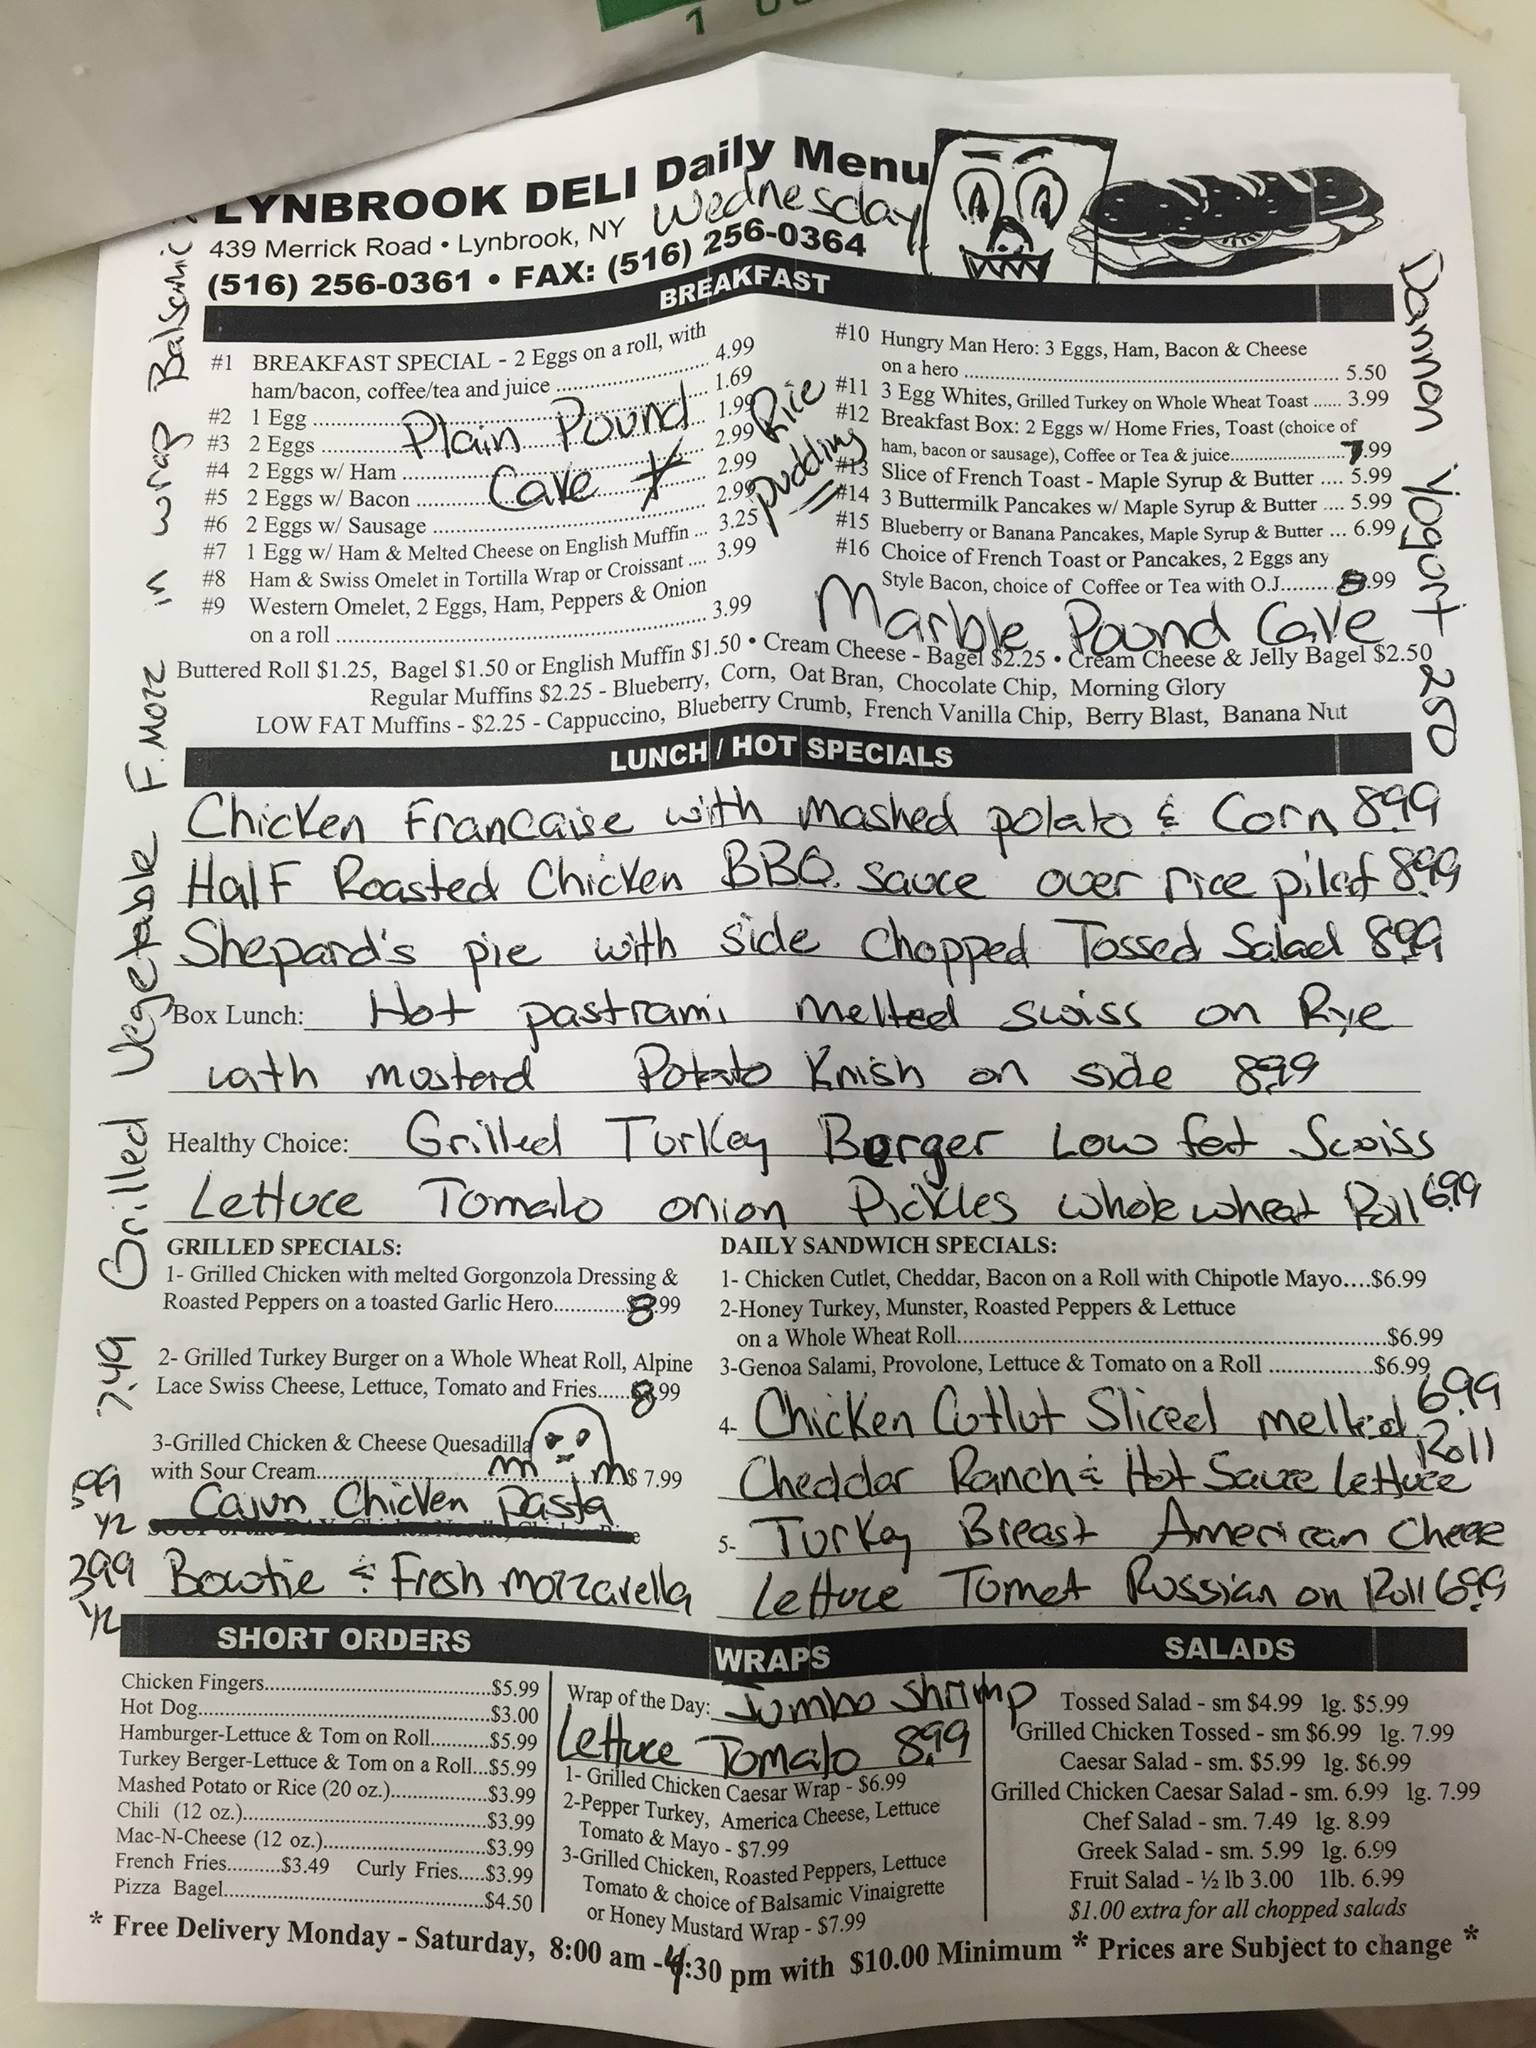 LYNBROOK DELI Daily Menu
Wednesday
439 Merrick Road • Lynbrook, NY
(516) 256-0361 • FAX: (516) 256-0364
BREAKFAST
#1 BREAKFAST SPECIAL - 2 Eggs on a roll, with
ham/bacon, coffee/tea and juice 4.99
#2 1 Egg 1.69
#3 2 Eggs 1.99
#4 2 Eggs w/ Ham 2.99
#5 2 Eggs w/ Bacon 2.99
#6 2 Eggs w/ Sausage 2.99
#7 1 Egg w/ Ham & Melted Cheese on English Muffin ... 3.25
#8 Ham & Swiss Omelet in Tortilla Wrap or Croissant .... 3.99
#9 Western Omelet, 2 Eggs, Ham, Peppers & Onion
on a roll 3.99
Plain Pound
Cake
Rice
pudding
#10 Hungry Man Hero: 3 Eggs, Ham, Bacon & Cheese
on a hero 5.50
#11 3 Egg Whites, Grilled Turkey on Whole Wheat Toast ...... 3.99
#12 Breakfast Box: 2 Eggs w/ Home Fries, Toast (choice of
ham, bacon or sausage), Coffee or Tea & juice 7.99
#13 Slice of French Toast - Maple Syrup & Butter .... 5.99
#14 3 Buttermilk Pancakes w/ Maple Syrup & Butter .... 5.99
#15 Blueberry or Banana Pancakes, Maple Syrup & Butter ... 6.99
#16 Choice of French Toast or Pancakes, 2 Eggs any
Style Bacon, choice of Coffee or Tea with O.J. 8.99
Marble Pound Cake
Buttered Roll $1.25, Bagel $1.50 or English Muffin $1.50 • Cream Cheese - Bagel $2.25 • Cream Cheese & Jelly Bagel $2.50
Regular Muffins $2.25 - Blueberry, Corn, Oat Bran, Chocolate Chip, Morning Glory
LOW FAT Muffins - $2.25 - Cappuccino, Blueberry Crumb, French Vanilla Chip, Berry Blast, Banana Nut
Dannon Yogurt 250
Grilled Vegetable F. Mozz in wrap Balsamic
7.49
LUNCH / HOT SPECIALS
Chicken Francaise with mashed potato & Corn 8.99
Half Roasted Chicken BBQ. sauce over rice pilaf 8.99
Shepard's pie with side Chopped Tossed Salad 8.99
Box Lunch: Hot pastrami melted swiss on Rye
with mosterd Potato Knish on side 8.99
Healthy Choice: Grilled Turkey Borger Low fat Swiss
Lettuce Tomato onion Pickles whole wheat Roll 6.99
GRILLED SPECIALS:
1- Grilled Chicken with melted Gorgonzola Dressing &
Roasted Peppers on a toasted Garlic Hero 8.99
2- Grilled Turkey Burger on a Whole Wheat Roll, Alpine
Lace Swiss Cheese, Lettuce, Tomato and Fries 8.99
3-Grilled Chicken & Cheese Quesadilla
with Sour Cream $ 7.99
3.99 1/2 Cajun Chicken Pasta
3.99 1/2 Bowtie & Fresh mozzarella
DAILY SANDWICH SPECIALS:
1- Chicken Cutlet, Cheddar, Bacon on a Roll with Chipotle Mayo....$6.99
2-Honey Turkey, Munster, Roasted Peppers & Lettuce
on a Whole Wheat Roll $6.99
3-Genoa Salami, Provolone, Lettuce & Tomato on a Roll $6.99
4- Chicken Cutlut Sliced melted 6.99
Cheddar Ranch & Hot Sauce Lettuce Roll
5- Turkey Breast American Cheese
Lettuce Tomat Russian on Roll 6.99
SHORT ORDERS
Chicken Fingers $5.99
Hot Dog $3.00
Hamburger-Lettuce & Tom on Roll $5.99
Turkey Berger-Lettuce & Tom on a Roll...$5.99
Mashed Potato or Rice (20 oz.) $3.99
Chili (12 oz.) $3.99
Mac-N-Cheese (12 oz.) $3.99
French Fries $3.49 Curly Fries $3.99
Pizza Bagel $4.50
WRAPS
Wrap of the Day: Jumbo Shrimp
Lettuce Tomato 8.99
1- Grilled Chicken Caesar Wrap - $6.99
2-Pepper Turkey, America Cheese, Lettuce
Tomato & Mayo - $7.99
3-Grilled Chicken, Roasted Peppers, Lettuce
Tomato & choice of Balsamic Vinaigrette
or Honey Mustard Wrap - $7.99
SALADS
Tossed Salad - sm $4.99 lg. $5.99
Grilled Chicken Tossed - sm $6.99 lg. 7.99
Caesar Salad - sm. $5.99 lg. $6.99
Grilled Chicken Caesar Salad - sm. 6.99 lg. 7.99
Chef Salad - sm. 7.49 lg. 8.99
Greek Salad - sm. 5.99 lg. 6.99
Fruit Salad - ½ lb 3.00 1lb. 6.99
$1.00 extra for all chopped salads
* Free Delivery Monday - Saturday, 8:00 am - 4:30 pm with $10.00 Minimum * Prices are Subject to change *